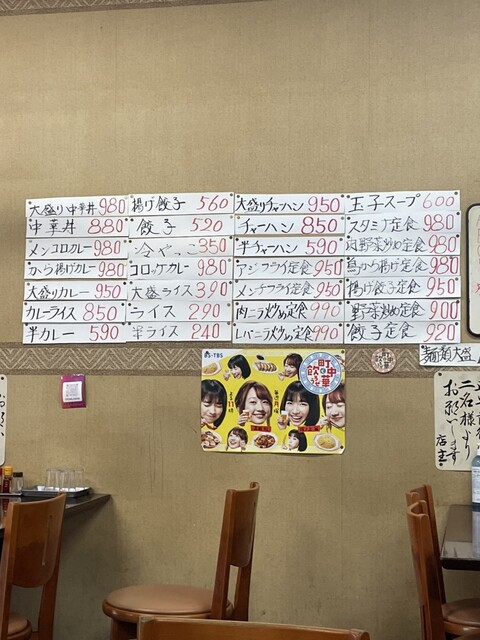 大盛り中華丼 980
中華丼 880
メンコロカレー 980
から揚げカレー 980
大盛りカレー 950
カレーライス 850
半カレー 590
揚げ餃子 560
餃子 520
冷やっこ 350
コロッケカレー 980
大盛ライス 390
ライス 290
半ライス 240
大盛りチャーハン 950
チャーハン 850
半チャーハン 590
アジフライ定食 950
メンチフライ定食 950
肉ニラ炒め定食 990
レバニラ炒め定食 990
玉子スープ 600
スタミナ定食 980
肉野菜炒め定食 980
鳥から揚げ定食 980
揚げ餃子定食 950
野菜炒め定食 900
餃子定食 920
麺類大盛
BS-TBS
町中華で飲ろうぜ
二名様より
お願いします
店主